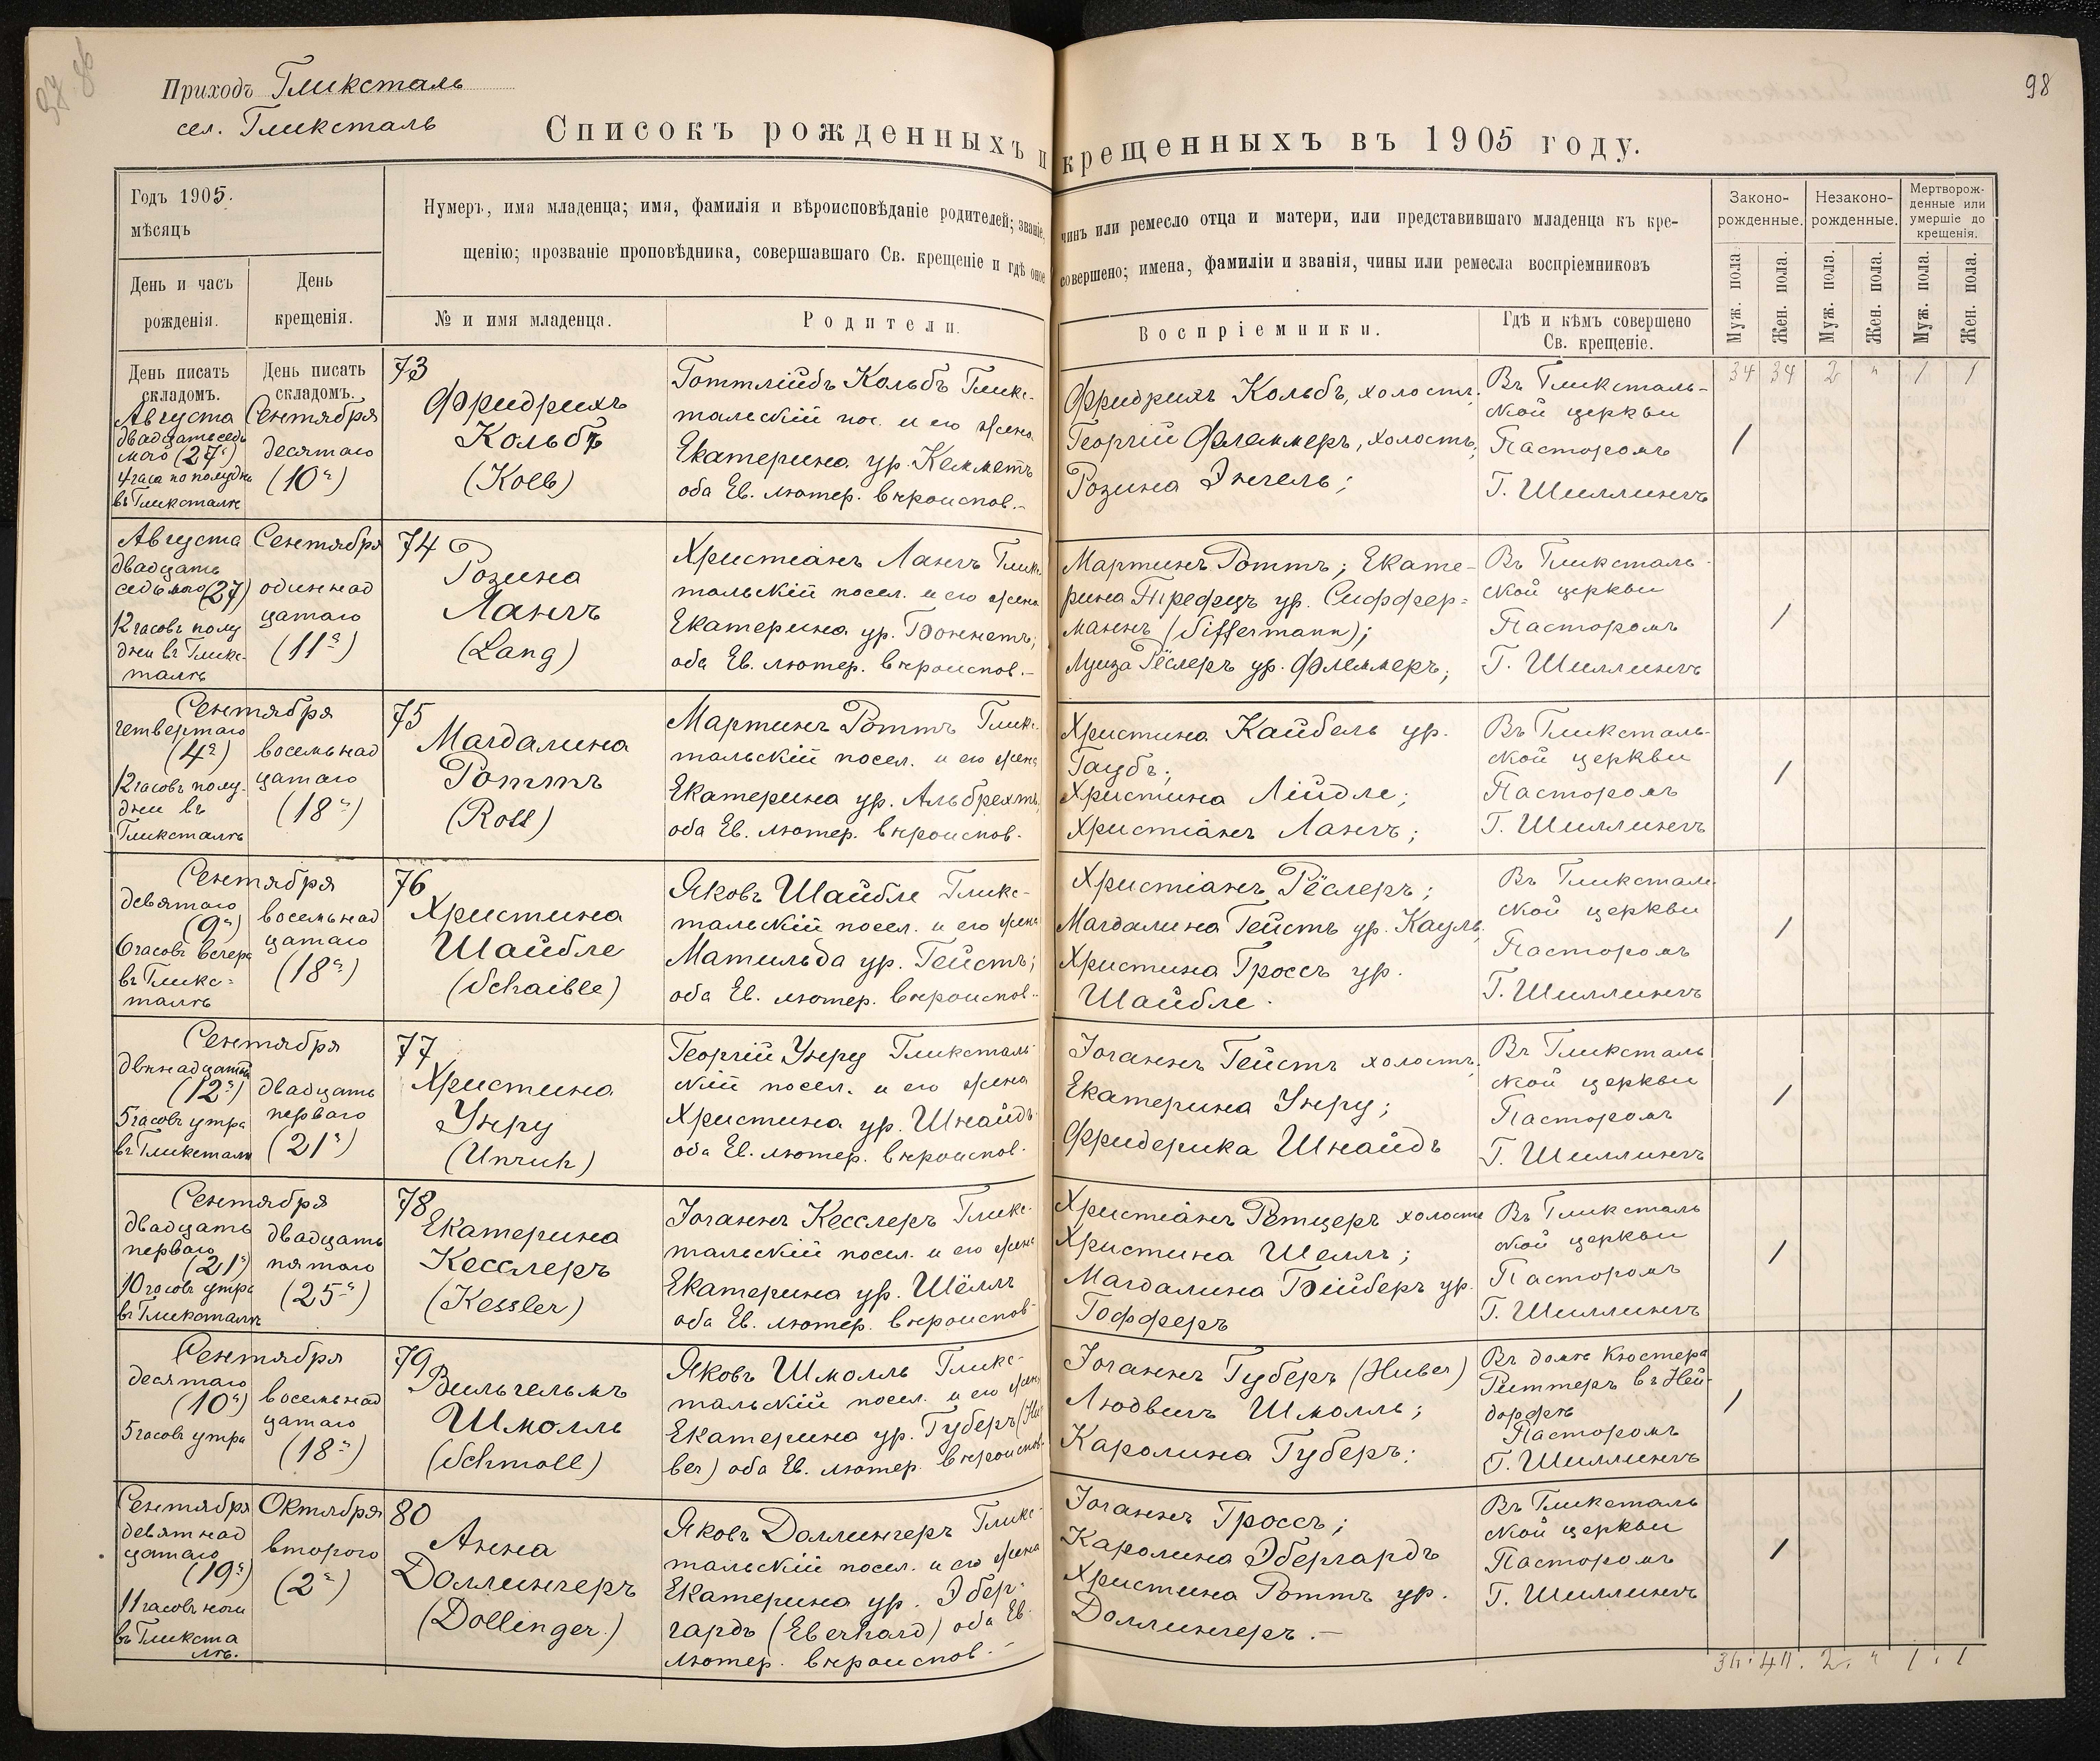 98
Приходъ Гликсталь
сел. Гликсталь
Списокъ рожденныхъ и крещенныхъ въ 1905 году.
Годъ 1905.
мѣсяцъ
День и часъ
рожденія.
День
крещенія.
Нумеръ, имя младенца; имя, фамилія и вѣроисповѣданіе родителей; званіе, чинъ или ремесло отца и матери, или представившаго младенца къ кре-
щенію; прозваніе проповѣдника, совершавшаго Св. крещеніе и гдѣ оное совершено; имена, фамиліи и званія, чины или ремесла воспріемниковъ
№ и имя младенца.
Родители.
Воспріемники.
Гдѣ и кѣмъ совершено
Св. крещеніе.
Законо-
рожденные.
Незаконо-
рожденные.
Мертворож-
денные или
умершіе до
крещенія.
Муж. пола.
Жен. пола.
Муж. пола.
Жен. пола.
Муж. пола.
Жен. пола.
День писать
складомъ.
День писать
складомъ.
34 34 2 " 1 1
Августа
двадцать седь
маго (27го)
4 часа по полудни
въ Гликсталѣ
Сентября
десятаго
(10го)
73
Фридрихъ
Кольбъ
(Kolb)
Готтлійбъ Кольбъ Гликс-
тальскій пос. и его жена
Екатерина ур. Кемметъ
оба Ев. лютер. вѣроиспов.-
Фридрихъ Кольбъ, холостъ;
Георгій Флеммеръ, холостъ;
Розина Энгель;
Въ Гликсталь-
ской церкви
Пасторомъ
Г. Шиллингъ
1
Августа
двадцать
седьмаго (27)
12 часовъ полу
дни въ Гликс-
талѣ
Сентября
одиннад
цатаго
(11го)
74
Розина
Лангъ
(Lang)
Христіанъ Лангъ Гликс-
тальскій посел. и его жена
Екатерина ур. Боннетъ;
оба Ев. лютер. вѣроиспов.-
Мартинъ Роттъ; Екате-
рина Трефцъ ур. Сиффер=
маннъ (Siffermann);
Луиза Рёслеръ ур. Флеммеръ;
Въ Гликсталь-
ской церкви
Пасторомъ
Г. Шиллингъ
1
Сентября
четвертаго
(4го)
12 часовъ полу-
дни въ
Гликсталѣ
восемьнад
цатаго
(18го)
75
Магдалина
Роттъ
(Rott)
Мартинъ Роттъ Гликс-
тальскій посел. и его жена
Екатерина ур. Альбрехтъ;
оба Ев. лютер. вѣроиспов.
Христина Кайбель ур.
Таубъ;
Христина Лійдле;
Христіанъ Лангъ;
Въ Гликсталь-
ской церкви
Пасторомъ
Г. Шиллингъ
1
Сентября
девятаго
(9го)
6 часовъ вечера
въ Гликс-
талѣ
восемьнад
цатаго
(18го)
76
Христина
Шайбле
(Schaible)
Яковъ Шайбле Гликс-
тальскій посел. и его жена
Матильда ур. Гейстъ;
оба Ев. лютер. вѣроиспов.-
Христіанъ Рёслеръ;
Магдалина Гейстъ ур. Кауль;
Христина Гроссъ ур.
Шайбле.
Въ Гликсталь-
ской церкви
Пасторомъ
Г. Шиллингъ
1
Сентября
двѣнадцатаго
(12го)
5 часовъ утра
въ Гликсталѣ
двадцать
перваго
(21го)
77
Христина
Унру
(Unruh)
Георгій Унру Гликсталь-
скій посел. и его жена
Христина ур. Шнайдъ
оба Ев. лютер. вѣроиспов.
Іоганнъ Гейстъ холостъ;
Екатерина Унру;
Фридерика Шнайдъ
Въ Гликсталь
ской церкви
Пасторомъ
Г. Шиллингъ
1
Сентября
двадцать
перваго
(21го)
10 часовъ утра
въ Гликсталѣ
двадцать
пятаго
(25го)
78
Екатерина
Кесслеръ
(Kessler)
Іоганнъ Кесслеръ Гликс-
тальскій посел. и его жена
Екатерина ур. Шёллъ
оба Ев. лютер. вѣроиспов.
Христіанъ Ретцеръ холостъ
Христина Шеллъ;
Магдалина Бійберъ ур.
Гофферъ
Въ Гликсталь
ской церкви
Пасторомъ
Г. Шиллингъ
1
Сентября
десятаго
(10го)
5 часовъ утра
восемьнад
цатаго
(18го)
79
Вильгельмъ
Шмолль
(Schmoll)
Яковъ Шмолль Гликс-
тальскій посел. и его жена
Екатерина ур. Губеръ (Hu
ber) оба Ев. лютер. вѣроиспов.
Іоганнъ Губеръ (Huber)
Людвигъ Шмолль;
Каролина Губеръ;
Въ домѣ Кюстера
Риттеръ въ Ней-
дорфѣ
Пасторомъ
Г. Шиллингъ
1
Сентября
девятнад
цатаго
(19го)
11 часовъ ночи
въ Гликста
лѣ.
Октября
второго
(2го)
80
Анна
Доллингеръ
(Dollinger.)
Яковъ Доллингеръ Гликс-
тальскій посел. и его жена
Екатерина ур. Эбер-
гардъ (Eberhard) оба Ев.
лютер. вѣроиспов.-
Іоганнъ Гроссъ;
Каролина Эбергардъ
Христина Роттъ ур.
Доллингеръ.-
Въ Гликсталь
ской церкви
Пасторомъ
Г. Шиллингъ
1
36. 40. 2. " 1. 1